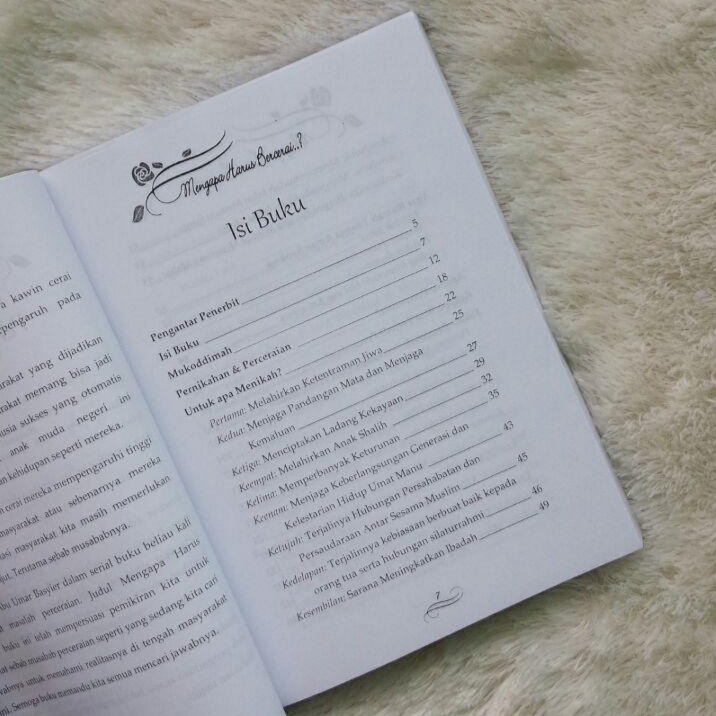 a kawin cerai
pengaruh pada
rakat yang dijadikan
rakat memang bisa jadi
usia sukses yang otomatis
anak muda negeri ini
kehidupan seperti mereka.
cerai mereka mempengaruhi tinggi
masyarakat atau sebenarnya mereka
tasi masyarakat kita masih memerlukan
jut. Terutama sebab musababnya.
bu Umar Basyier dalam serial buku beliau kali
masalah perceraian. Judul Mengapa Harus
buku ini telah mempersuasi pemikiran kita untuk
at sebab musabab perceraian seperti yang sedang kita cari
wabnya untuk memahami realitasnya di tengah masyarakat
ini. Semoga buku memandu kita semua mencari jawabnya.
Mengapa Harus Bercerai..?
Isi Buku
Pengantar Penerbit 5
Isi Buku 7
Mukoddimah 12
Pernikahan & Perceraian 18
Untuk apa Menikah? 22
Pertama: Melahirkan Ketentraman Jiwa 25
Kedua: Menjaga Pandangan Mata dan Menjaga
Kemaluan 27
Ketiga: Menciptakan Ladang Kekayaan 29
Keempat: Melahirkan Anak Shalih 32
Kelima: Memperbanyak Keturunan 35
Keenam: Menjaga Keberlangsungan Generasi dan
Kelestarian Hidup Umat Manu 43
Ketujuh: Terjalinya Hubungan Persahabatan dan
Persaudaraan Antar Sesama Muslim 45
Kedelapan: Terjalinya kebiasaan berbuat baik kepada
orang tua serta hubungan silaturrahmi 46
Kesembilan: Sarana Meningkatkan Ibadah 49
7